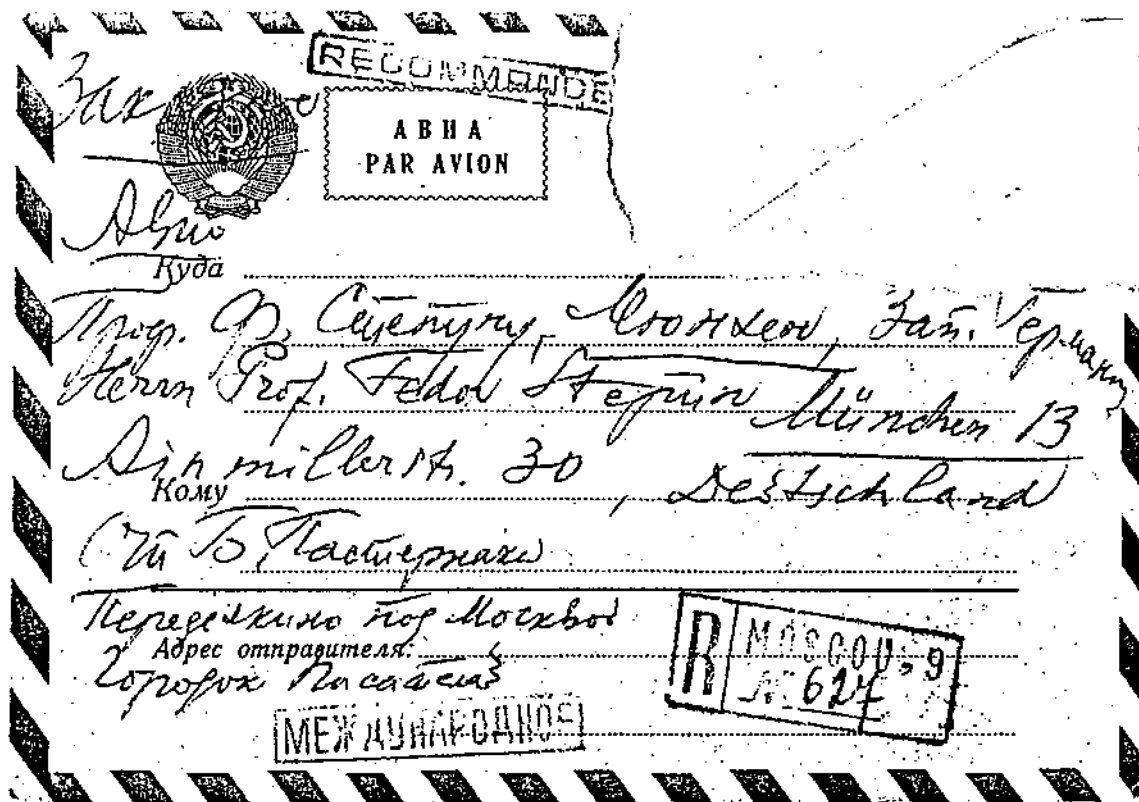 RECOMMANDÉ
АВИА
PAR AVION
Авио
Куда
Проф. Ф. Степуну, Мюнхен, Зап. Германия
Herrn Prof. Fedor Stepun München 13
Ainmillerstr. 30, Deutschland
Кому
От Б. Пастернака
Переделкино под Москвой
Адрес отправителя:
Городок Писателей
R MOSCOU, 9
№ 627
МЕЖДУНАРОДНОЕ